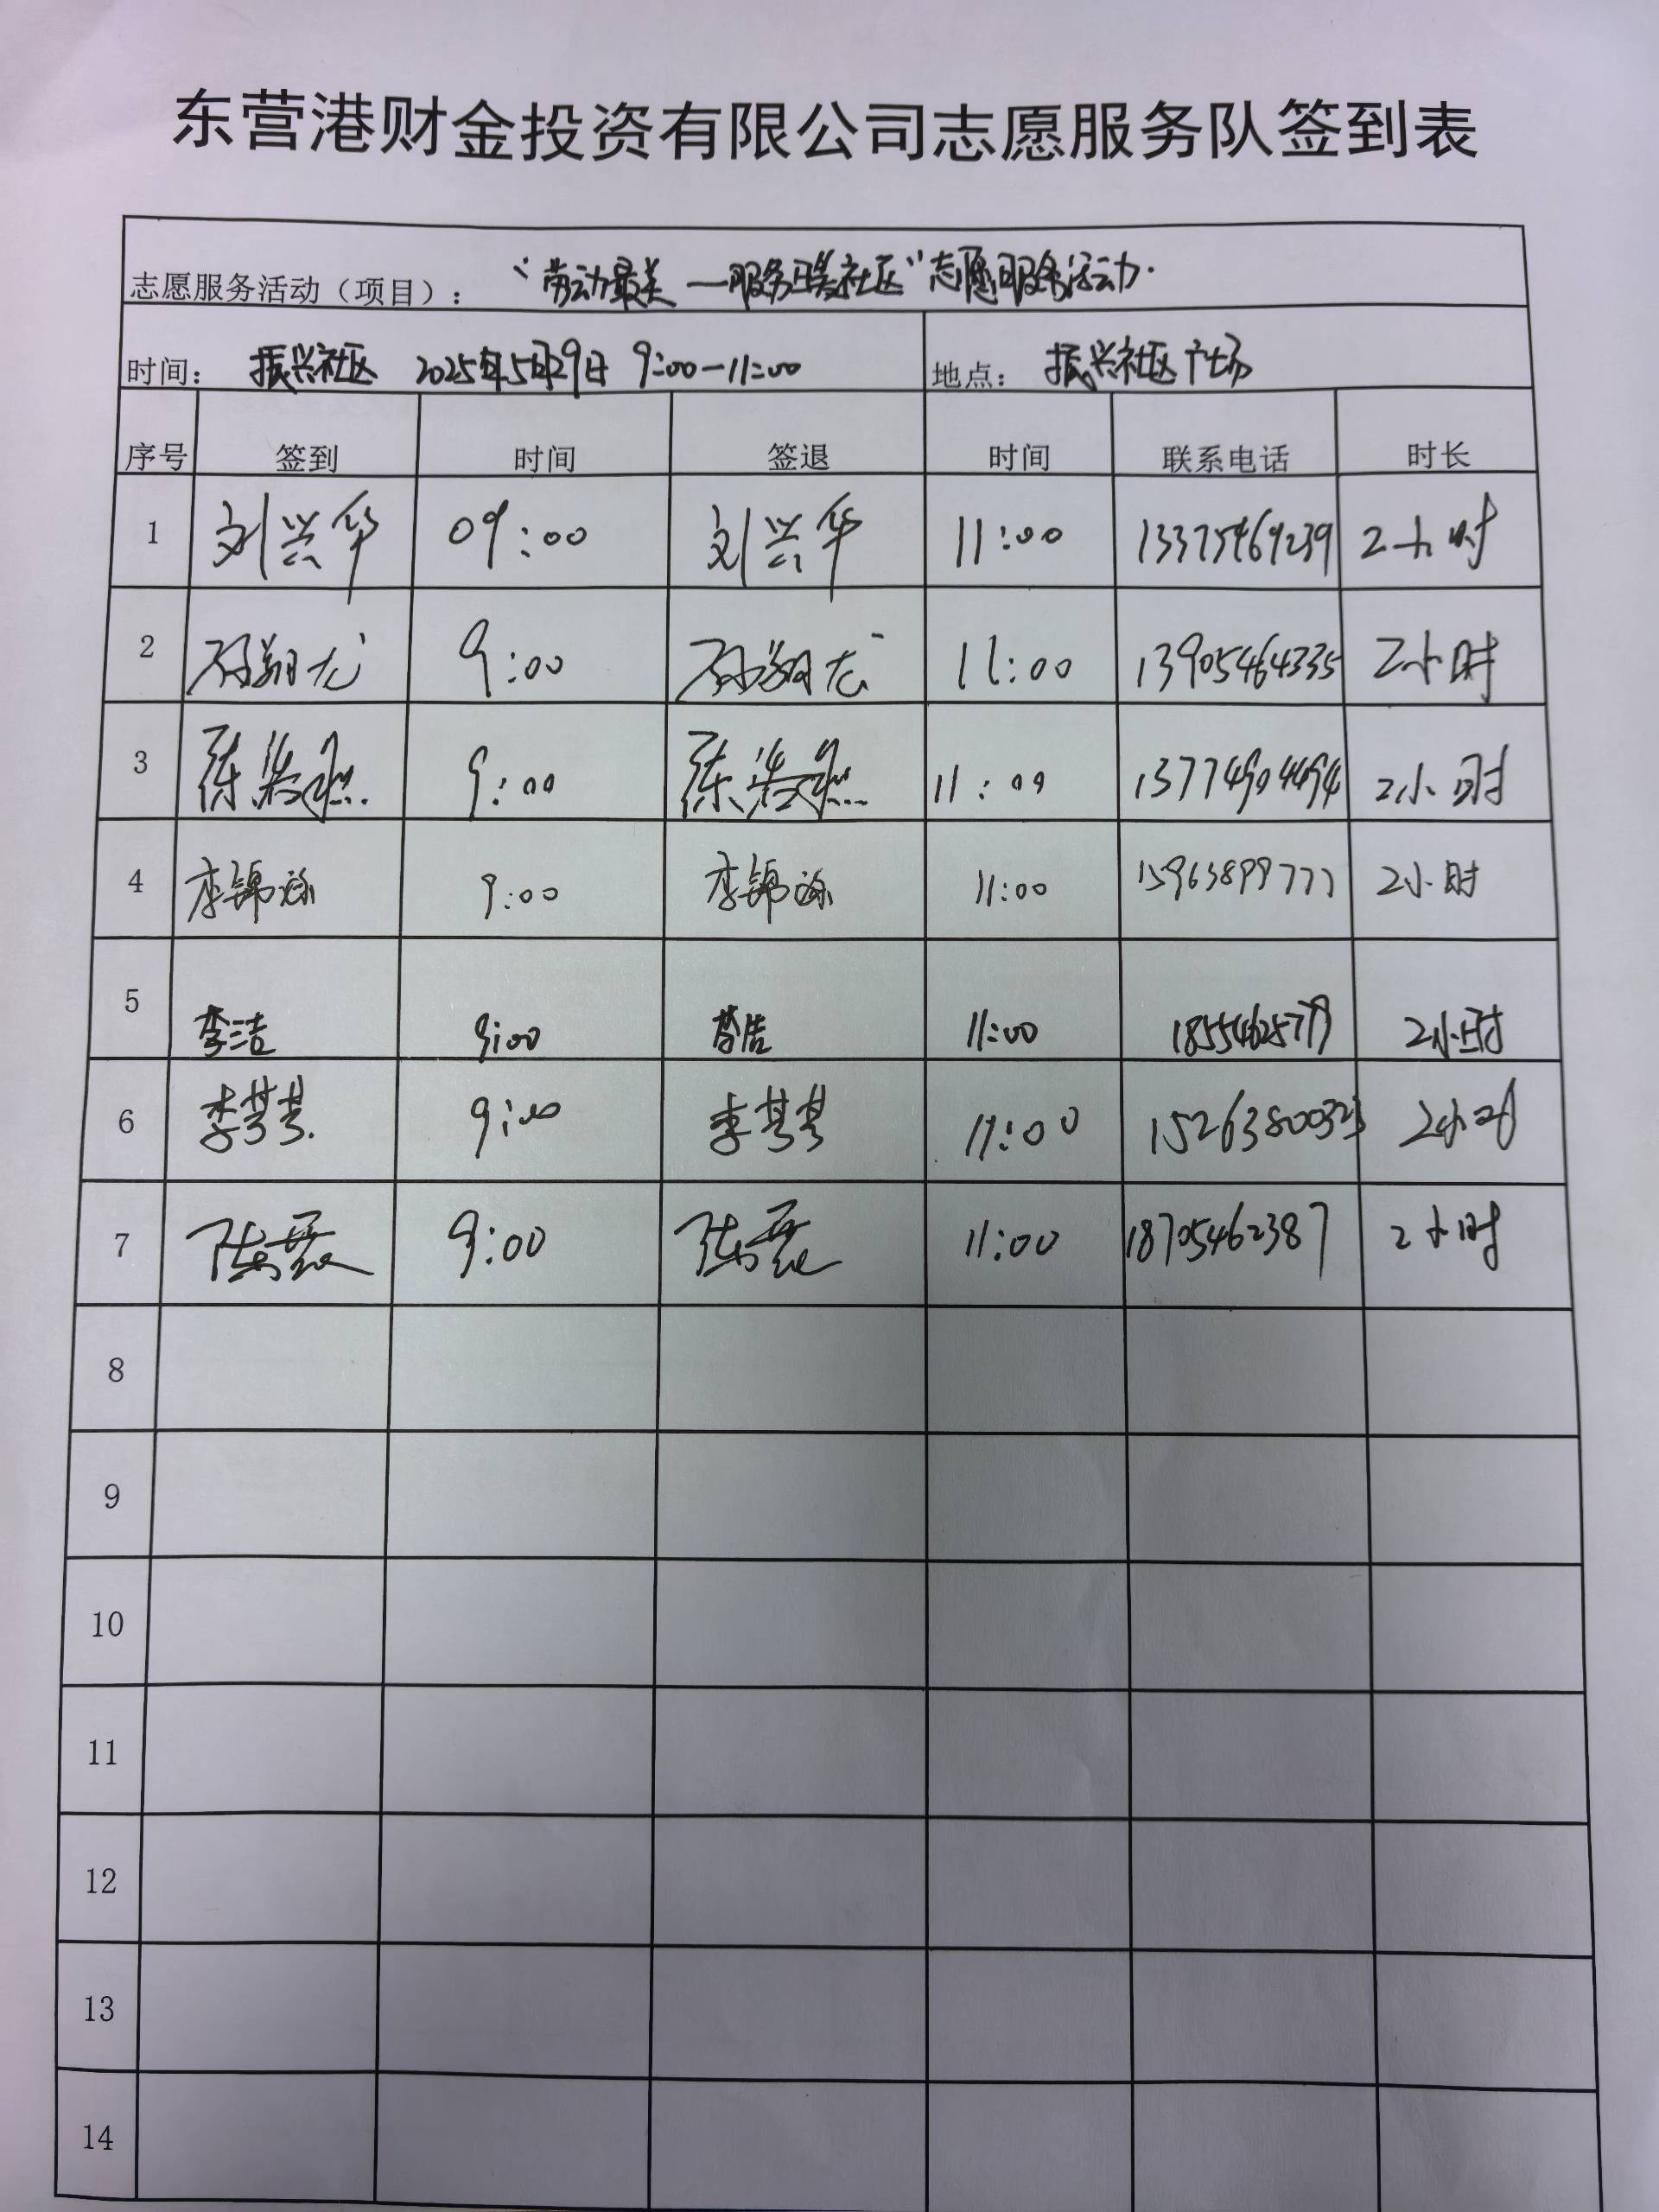 东营港财金投资有限公司志愿服务队签到表
志愿服务活动（项目）： “劳动最美—服务 社区”志愿服务活动.
时间： 振兴社区 2025年5月29日 9:00-11:00 地点： 振兴社区广场
序号 签到 时间 签退 时间 联系电话 时长
1 刘兴华 09:00 刘兴华 11:00 13375469239 2小时
2 孙翔龙 9:00 孙翔龙 11:00 13905464335 2小时
3 陈 9:00 陈 11:00 13774904494 2小时
4 李锦 9:00 李锦 11:00 15963899777 2小时
5 李洁 9:00 李洁 11:00 2小时
6 李 9:00 李 11:00 2小时
7 陈磊 9:00 陈磊 11:00 18705462387 2小时
8
9
10
11
12
13
14